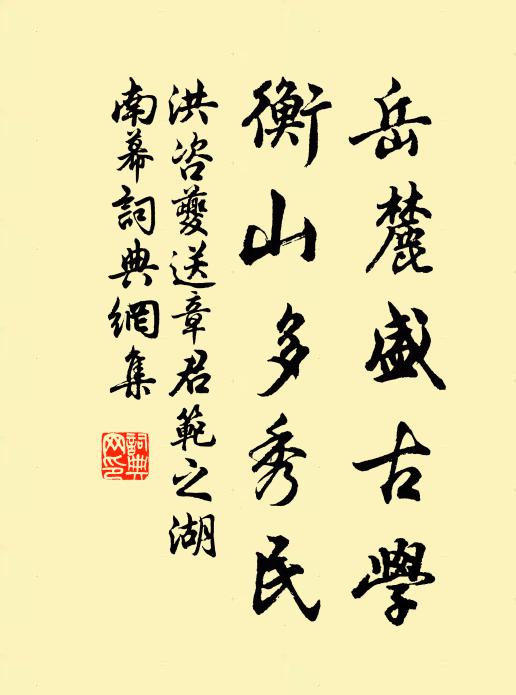 岳麓盛古學
衡山多秀民
洪咨夔送章君範之湖
南幕詞典網集
詞典
网印